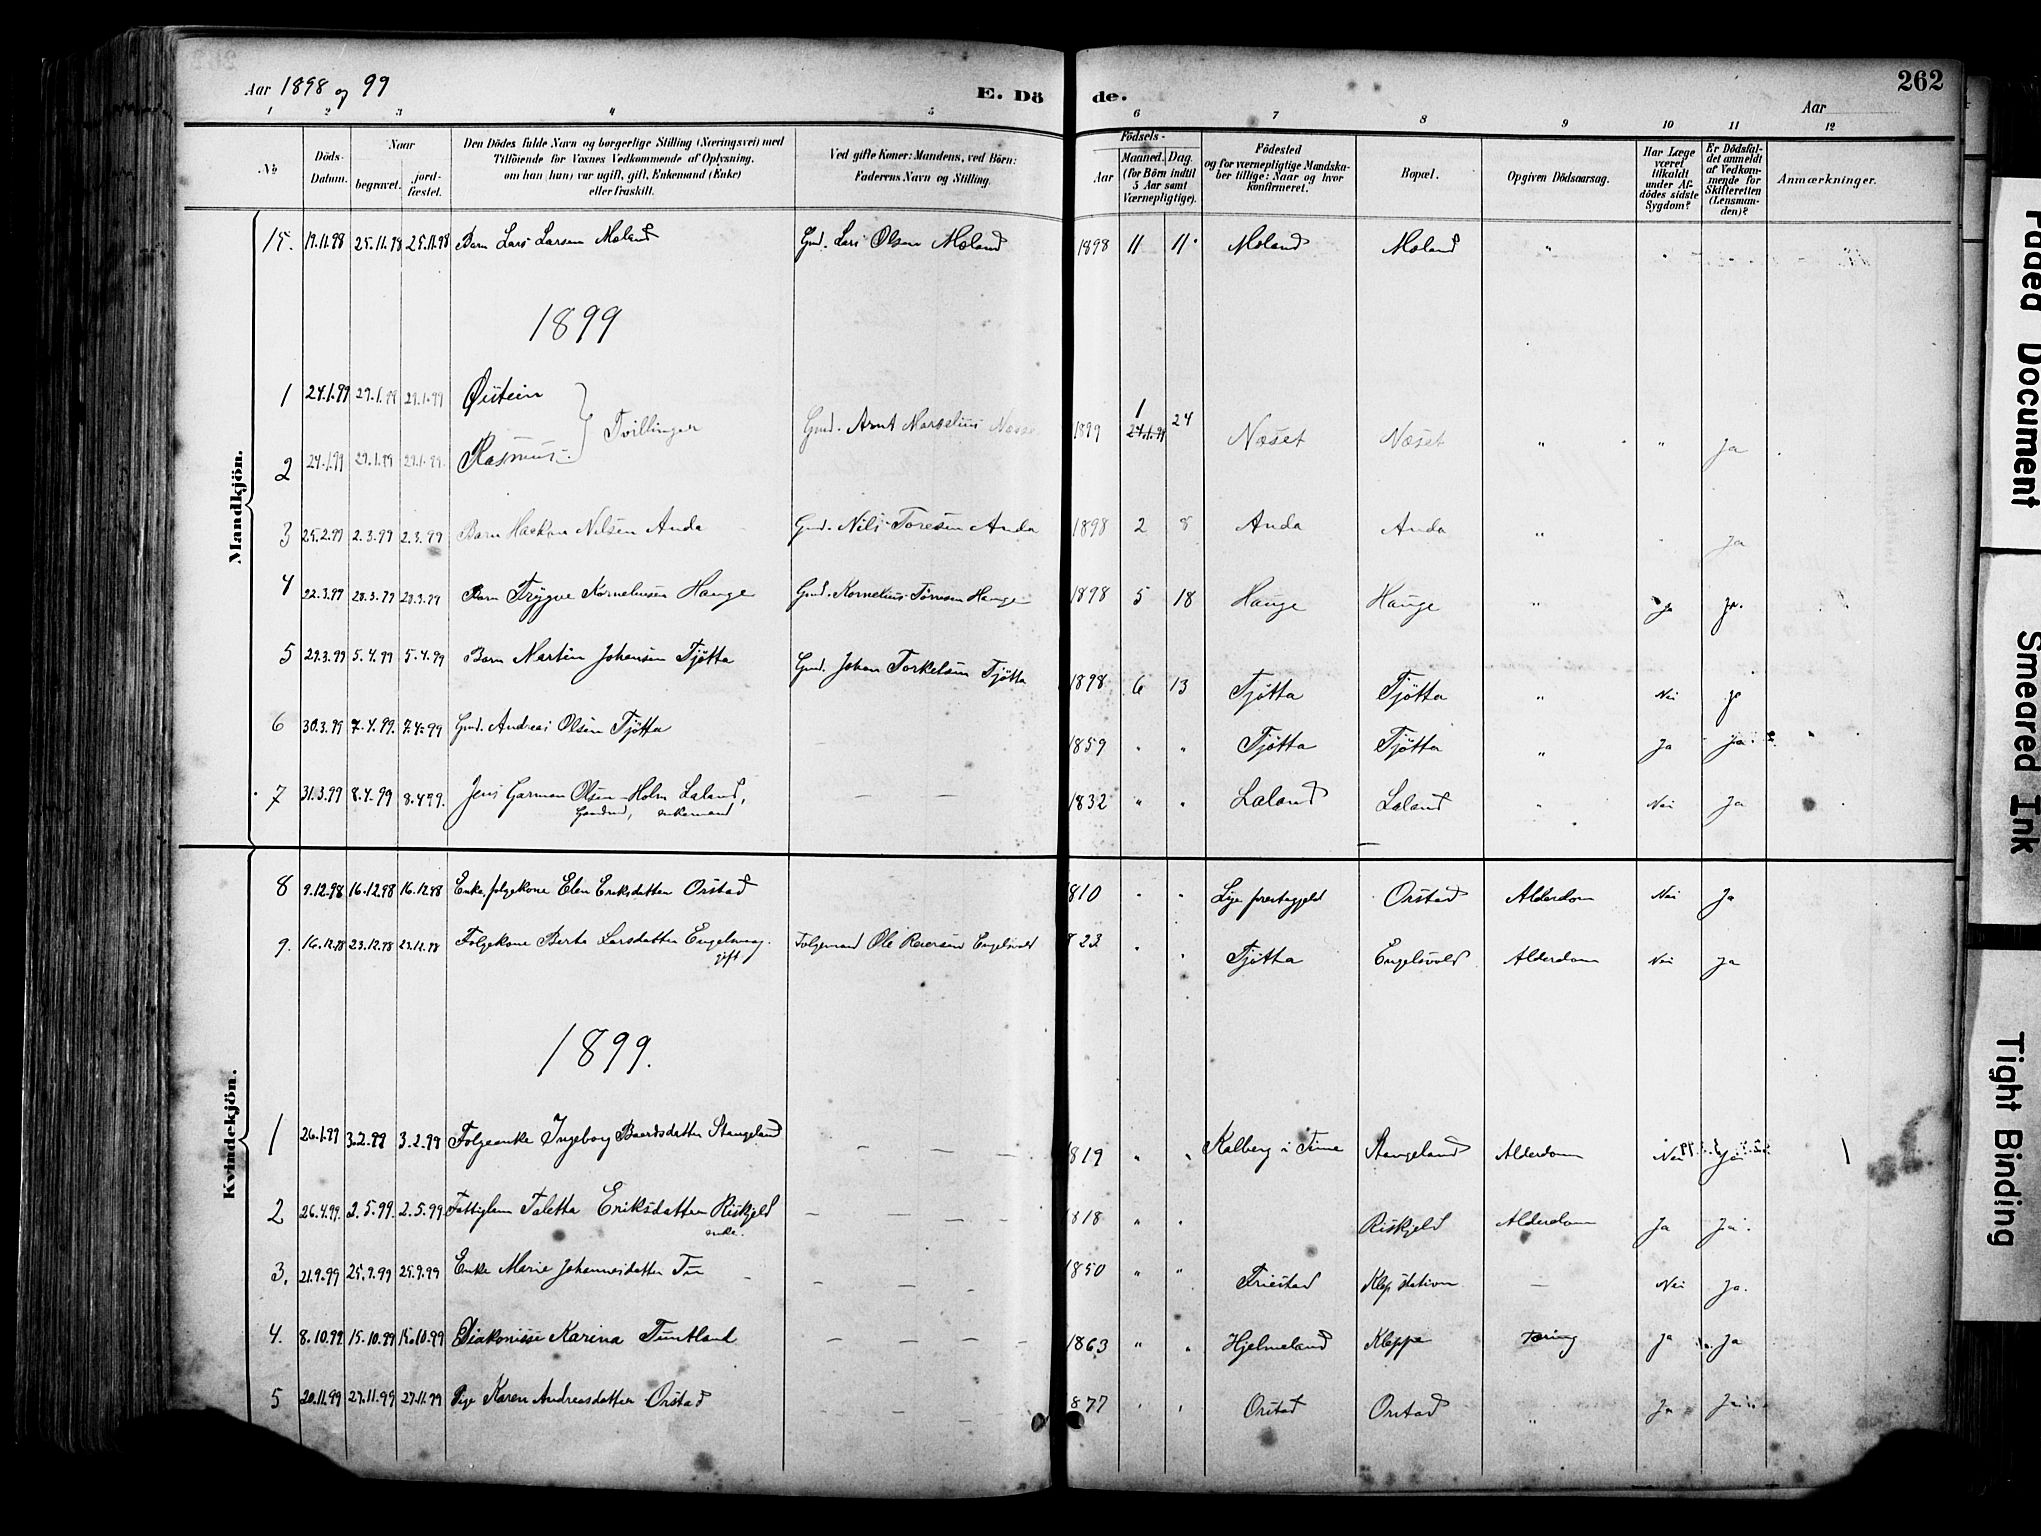 Aar 1898 og 99
E. Dö de.
Aar
262
1 2 3 4 5 6 7 8 9 10 11 12
№
Döds-Datum.
Naar
begravet.
jord-fæstet.
Den Dödes fulde Navn og borgerlige Stilling (Næringsvei) med
Tilföiende for Voxnes Vedkommende af Oplysning,
om han (hun) var ugift, gift, Enkemand (Enke)
eller fraskilt.
Ved gifte Koner: Mandens, ved Börn:
Faderens Navn og Stilling.
Födsels-
Aar
Maaned. Dag.
(for Börn indtil
5 Aar samt
Værnepligtige).
Födested
og for værnepligtige Mandska-
ber tillige: Naar og hvor
konfirmeret.
Bopæl.
Opgiven Dödsaarsag.
Har Læge
været
tilkaldt
under Af-
dödes sidste
Sygdom?
Er Dödsfal-
det anmeldt
af Vedkom-
mende for
Skifteretten
(Lensman-
den)?
Anmærkninger.
Mandkjön.
15. 19.11.98 25.11.98 25.11.98 Barn Lars Larsen Moland Gmd. Lars Olsen Moland 1898 11 11 Moland Moland "
1899
1 24.1.99 29.1.99 29.1.99 Øistein
Tvillinger Gmd. Arnt Marselius 1899 1 24.1.99 24 Næset Næset " " Ja
2 24.1.99 29.1.99 29.1.99 Rasmus
3 25.2.99 2.3.99 2.3.99 Barn Haakon Nilsen Anda Gmd. Nils Toresen Anda 1898 2 8 Anda Anda " Ja
4 22.3.99 28.3.99 28.3.99 Barn Trygve Korneliusen Hauge Gmd. Kornelius Tørresen Hauge 1898 5 18 Hauge Hauge " Ja Ja.
5 29.3.99 5.4.99 5.4.99 Barn Martin Johansen Tjøtta Gmd. Johan Torkelsen Tjøtta 1898 6 13 Tjøtta Tjøtta " Nei Ja
6 30.3.99 7.4.99. 7.4.99 Gmd. Andreas Olsen Tjøtta — 1859 " " Tjøtta Tjøtta " Ja Ja
7 31.3.99 8.4.99 8.4.99. Jens Garman Olsen Holm Laland, — — 1832 " " Laland Laland " Nei Ja
Gaardmd, enkemand
Kvindekjön.
8 9.12.98 16.12.98 16.12.98 Enke, folgekone Elen Eriksdatter Orstad 1810 " " Lye prestegjeld Orstad Alderdom Nei Ja
9. 16.12.98 23.12.98 23.12.98 Folgekone Berta Larsdatter Folgemand Ole Reiersen Engelsvold 823 " " Tjøtta Engelsvold Alderdom Nei Ja
gift
1899.
1 26.1.99 3.2.99 3.2.99 Folgeenke Ingeborg Baardsdatter Stangeland — — 1819 " " Kalberg i Time Stangeland Alderdom Nei Ja
2 26.4.99. 2.5.99. 2.5.99 Fattiglem Taletta Eriksdatter Riskjeld — — — — 1818 " " Riskjeld Alderdom Ja Ja.
enke.
3. 21.9.99 25.9.99 25.9.99 Enke Marie Johannesdatter Tu — — — — 1850 " " Friestad Klep Station — Nei Ja.
4. 8.10.99 15.10.99 15.10.99 Diakonisse Karina Tuntland — — — — 1863 " " Hjelmeland Kleppe Tæring Ja Ja
5 20.11.99 27.11.99 27.11.99 Pige Karen Andreasdatter Orstad — — — 877 " " Orstad Orstad " Ja Ja
Faded Document
Smeared Ink
Tight Binding